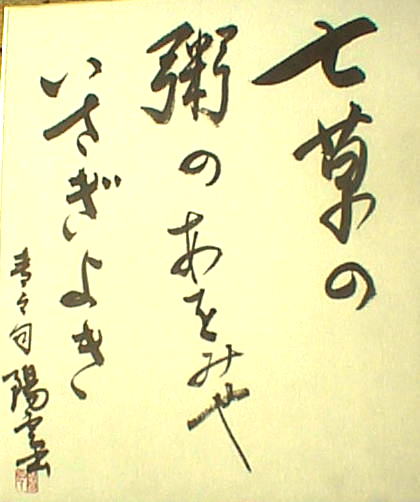 七草の
粥のあをみや
いさぎよき
青々句 陽雲